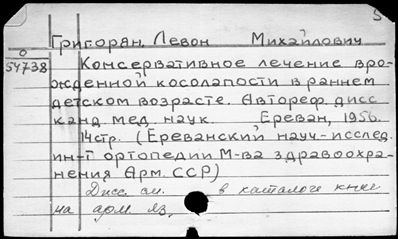 5
Григорян, Левон Михайлович
0
54738
Консервативное лечение вро-
жденной косолапости в раннем
детском возрасте. Автореф. дисс
канд мед. наук. Ереван, 1956.
14 стр. (Ереванский науч-исслед.
ин-т ортопедии М-ва здравоохра-
нения Арм. ССР)
Дисс. см. в каталоге книг
на арм. яз.